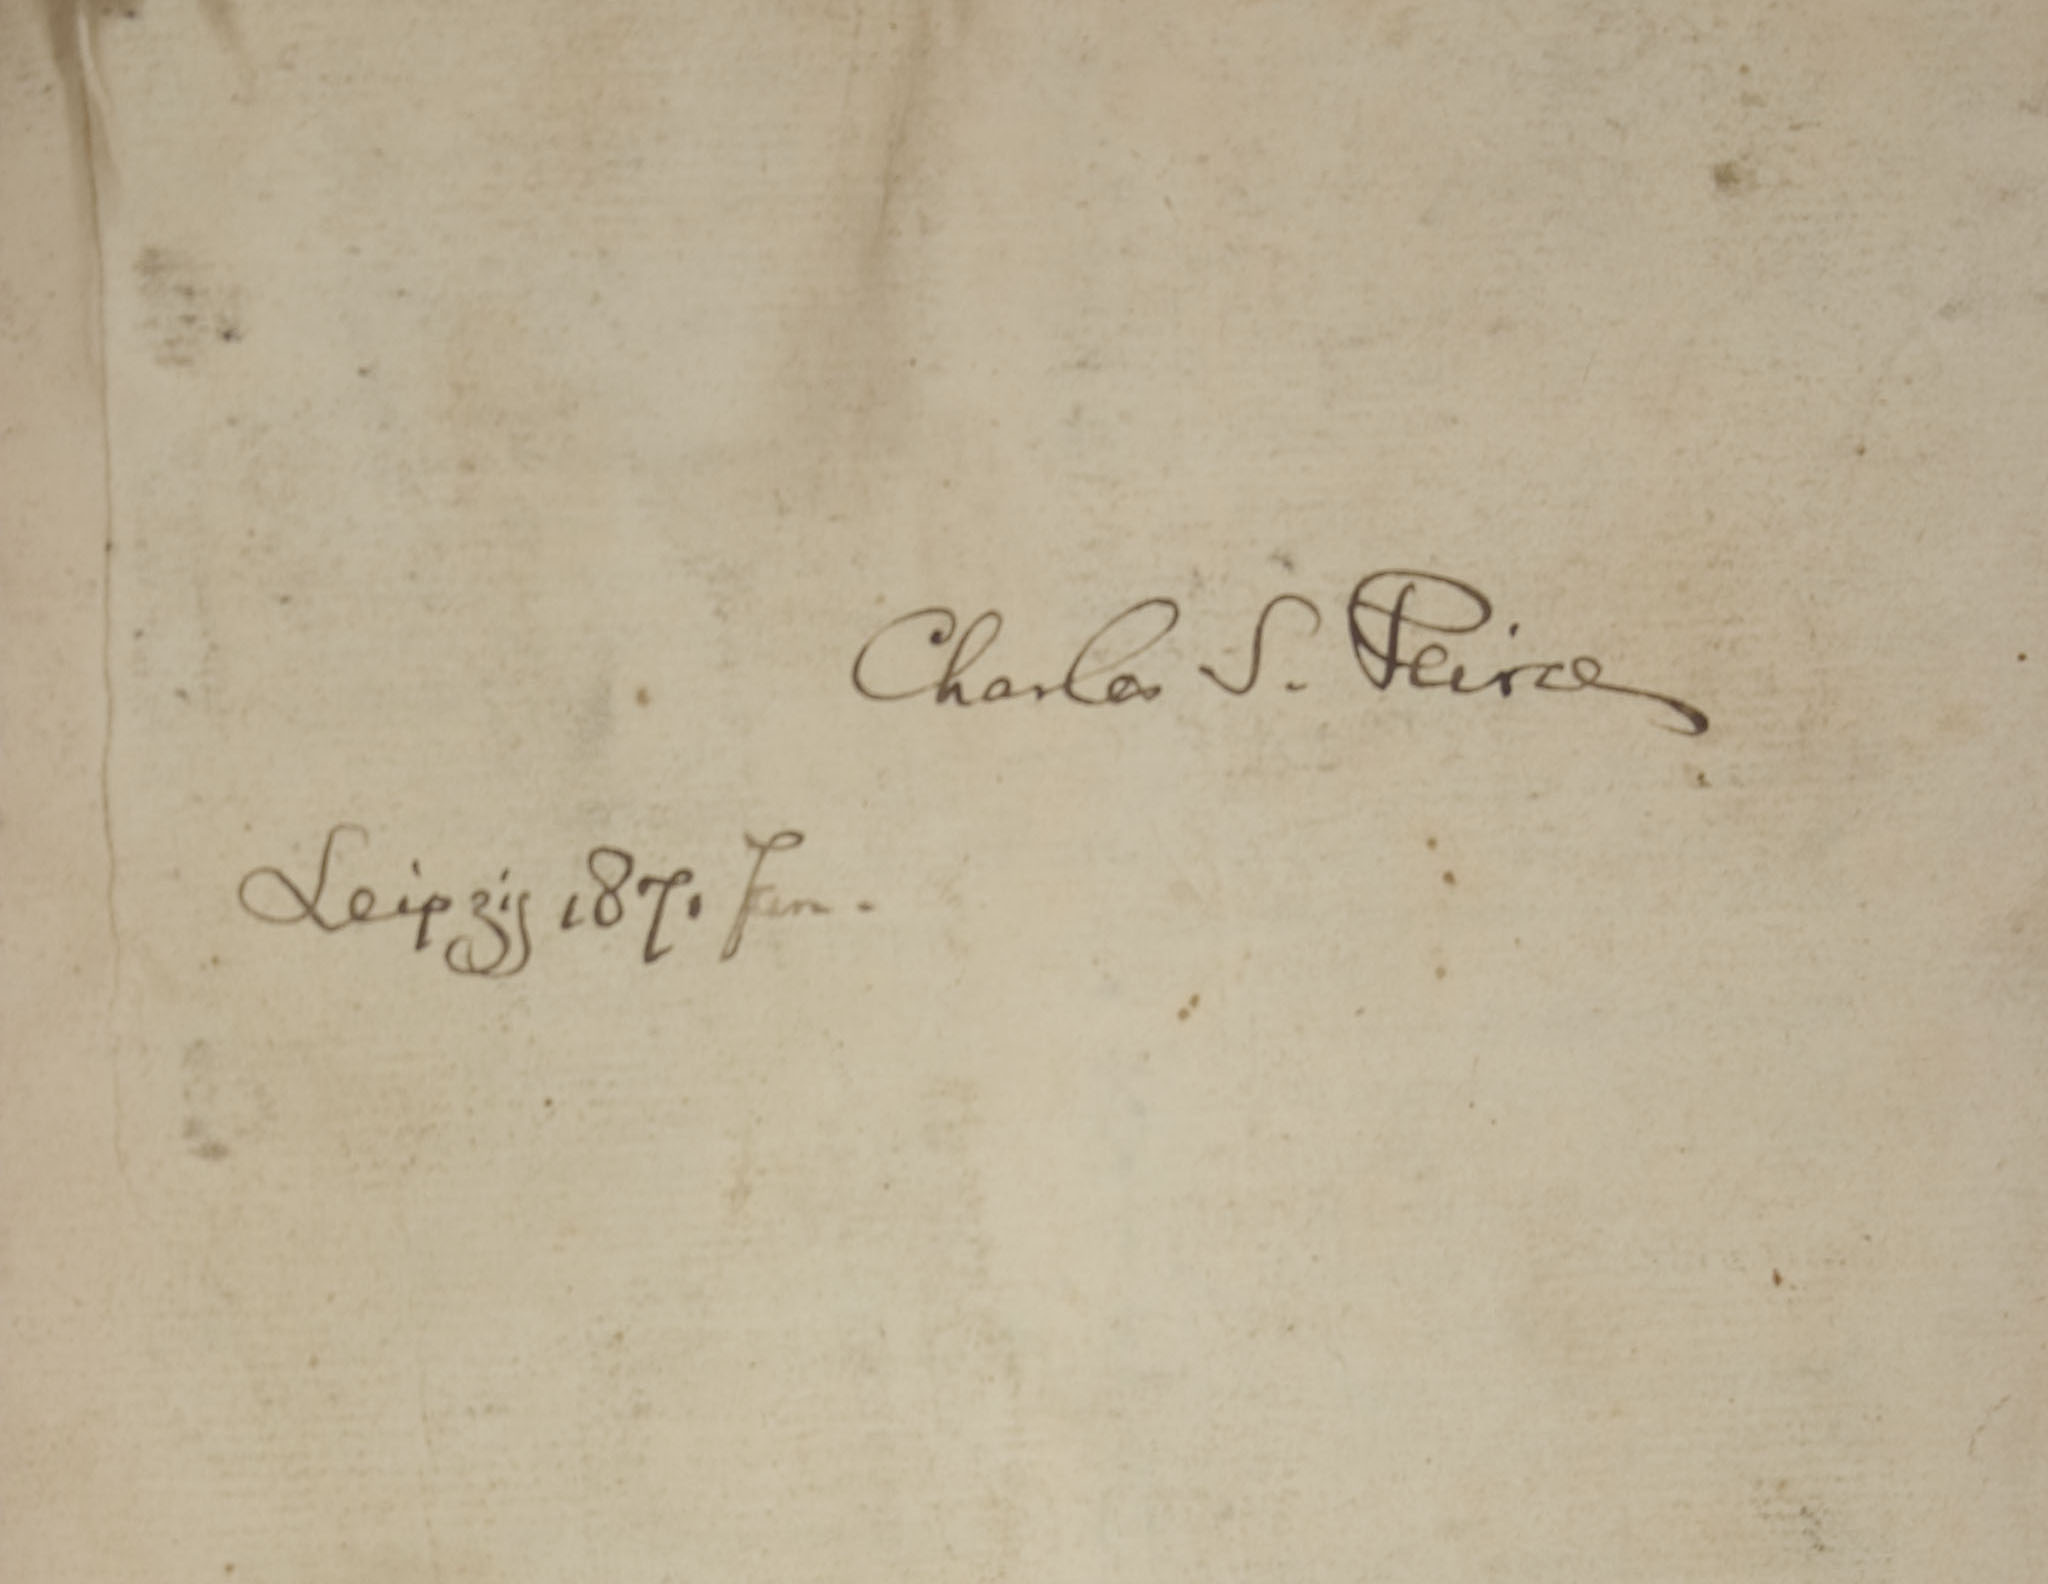 Charles S. Peirce
Leipzig 1871 Jan.